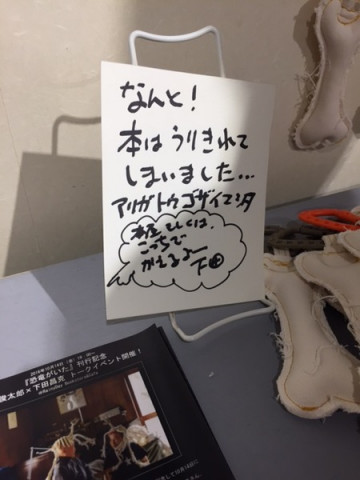 なんと!
本はうりきれて
しまいました...
アリガトウゴザイマシタ
もしくは、
こっちで
かえるよー
下田
『恐竜がいた』刊行記念
俊太郎×下田昌克 トークイベント開催!